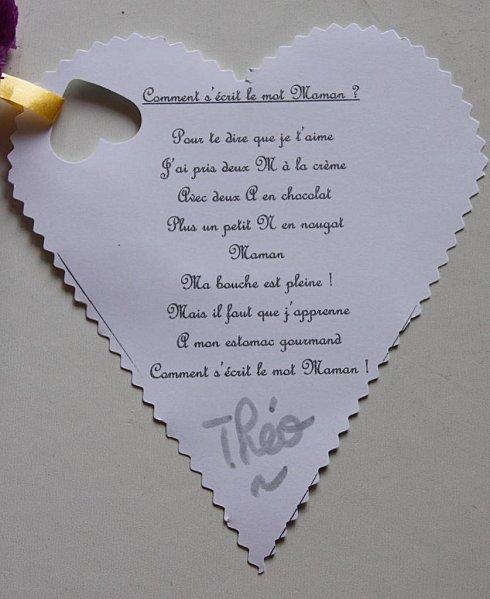 Comment s'écrit le mot Maman ?
Pour te dire que je t'aime
J'ai pris deux M à la crème
Avec deux A en chocolat
Plus un petit N en nougat
Maman
Ma bouche est pleine !
Mais il faut que j'apprenne
A mon estomac gourmand
Comment s'écrit le mot Maman !
Théo